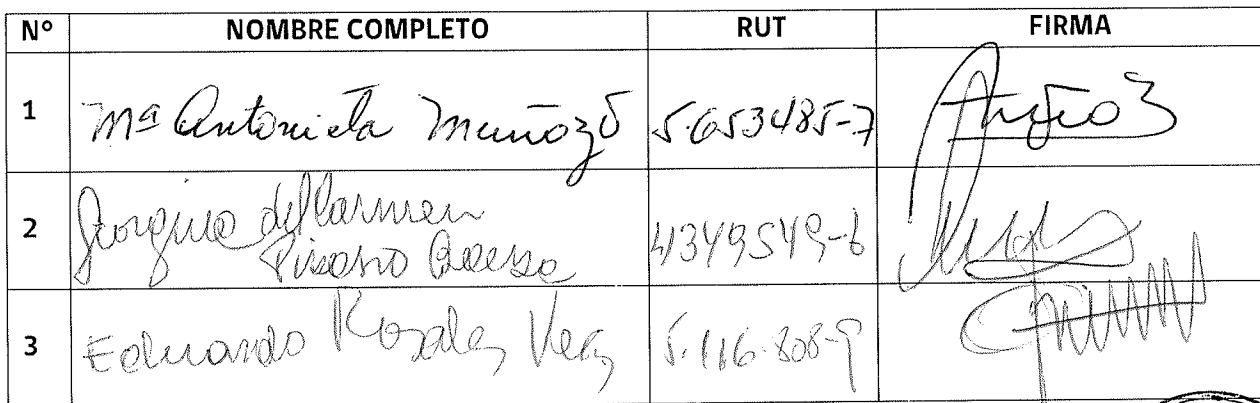 Nº NOMBRE COMPLETO RUT FIRMA
1 Mª Antonieta Muñoz O 5.653485-7 Muñoz
2 Georgina del Carmen
Pizarro Baeza 4349549-6
3 Eduardo Rosales Vera 5.116.808-9